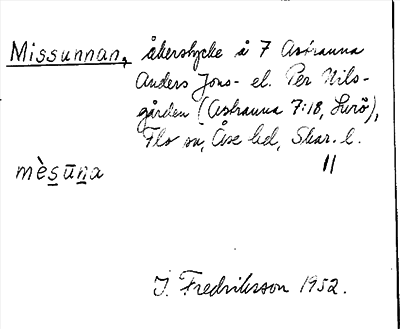 Missunnan, åkerstycke å 7 Åstranna
Anders Jons- el. Per Nils-
gården (Åstranna 7:18, Lurö),
Flo sn, Åse hd, Skar. l.
mèsūna
11
J. Fredriksson 1952.